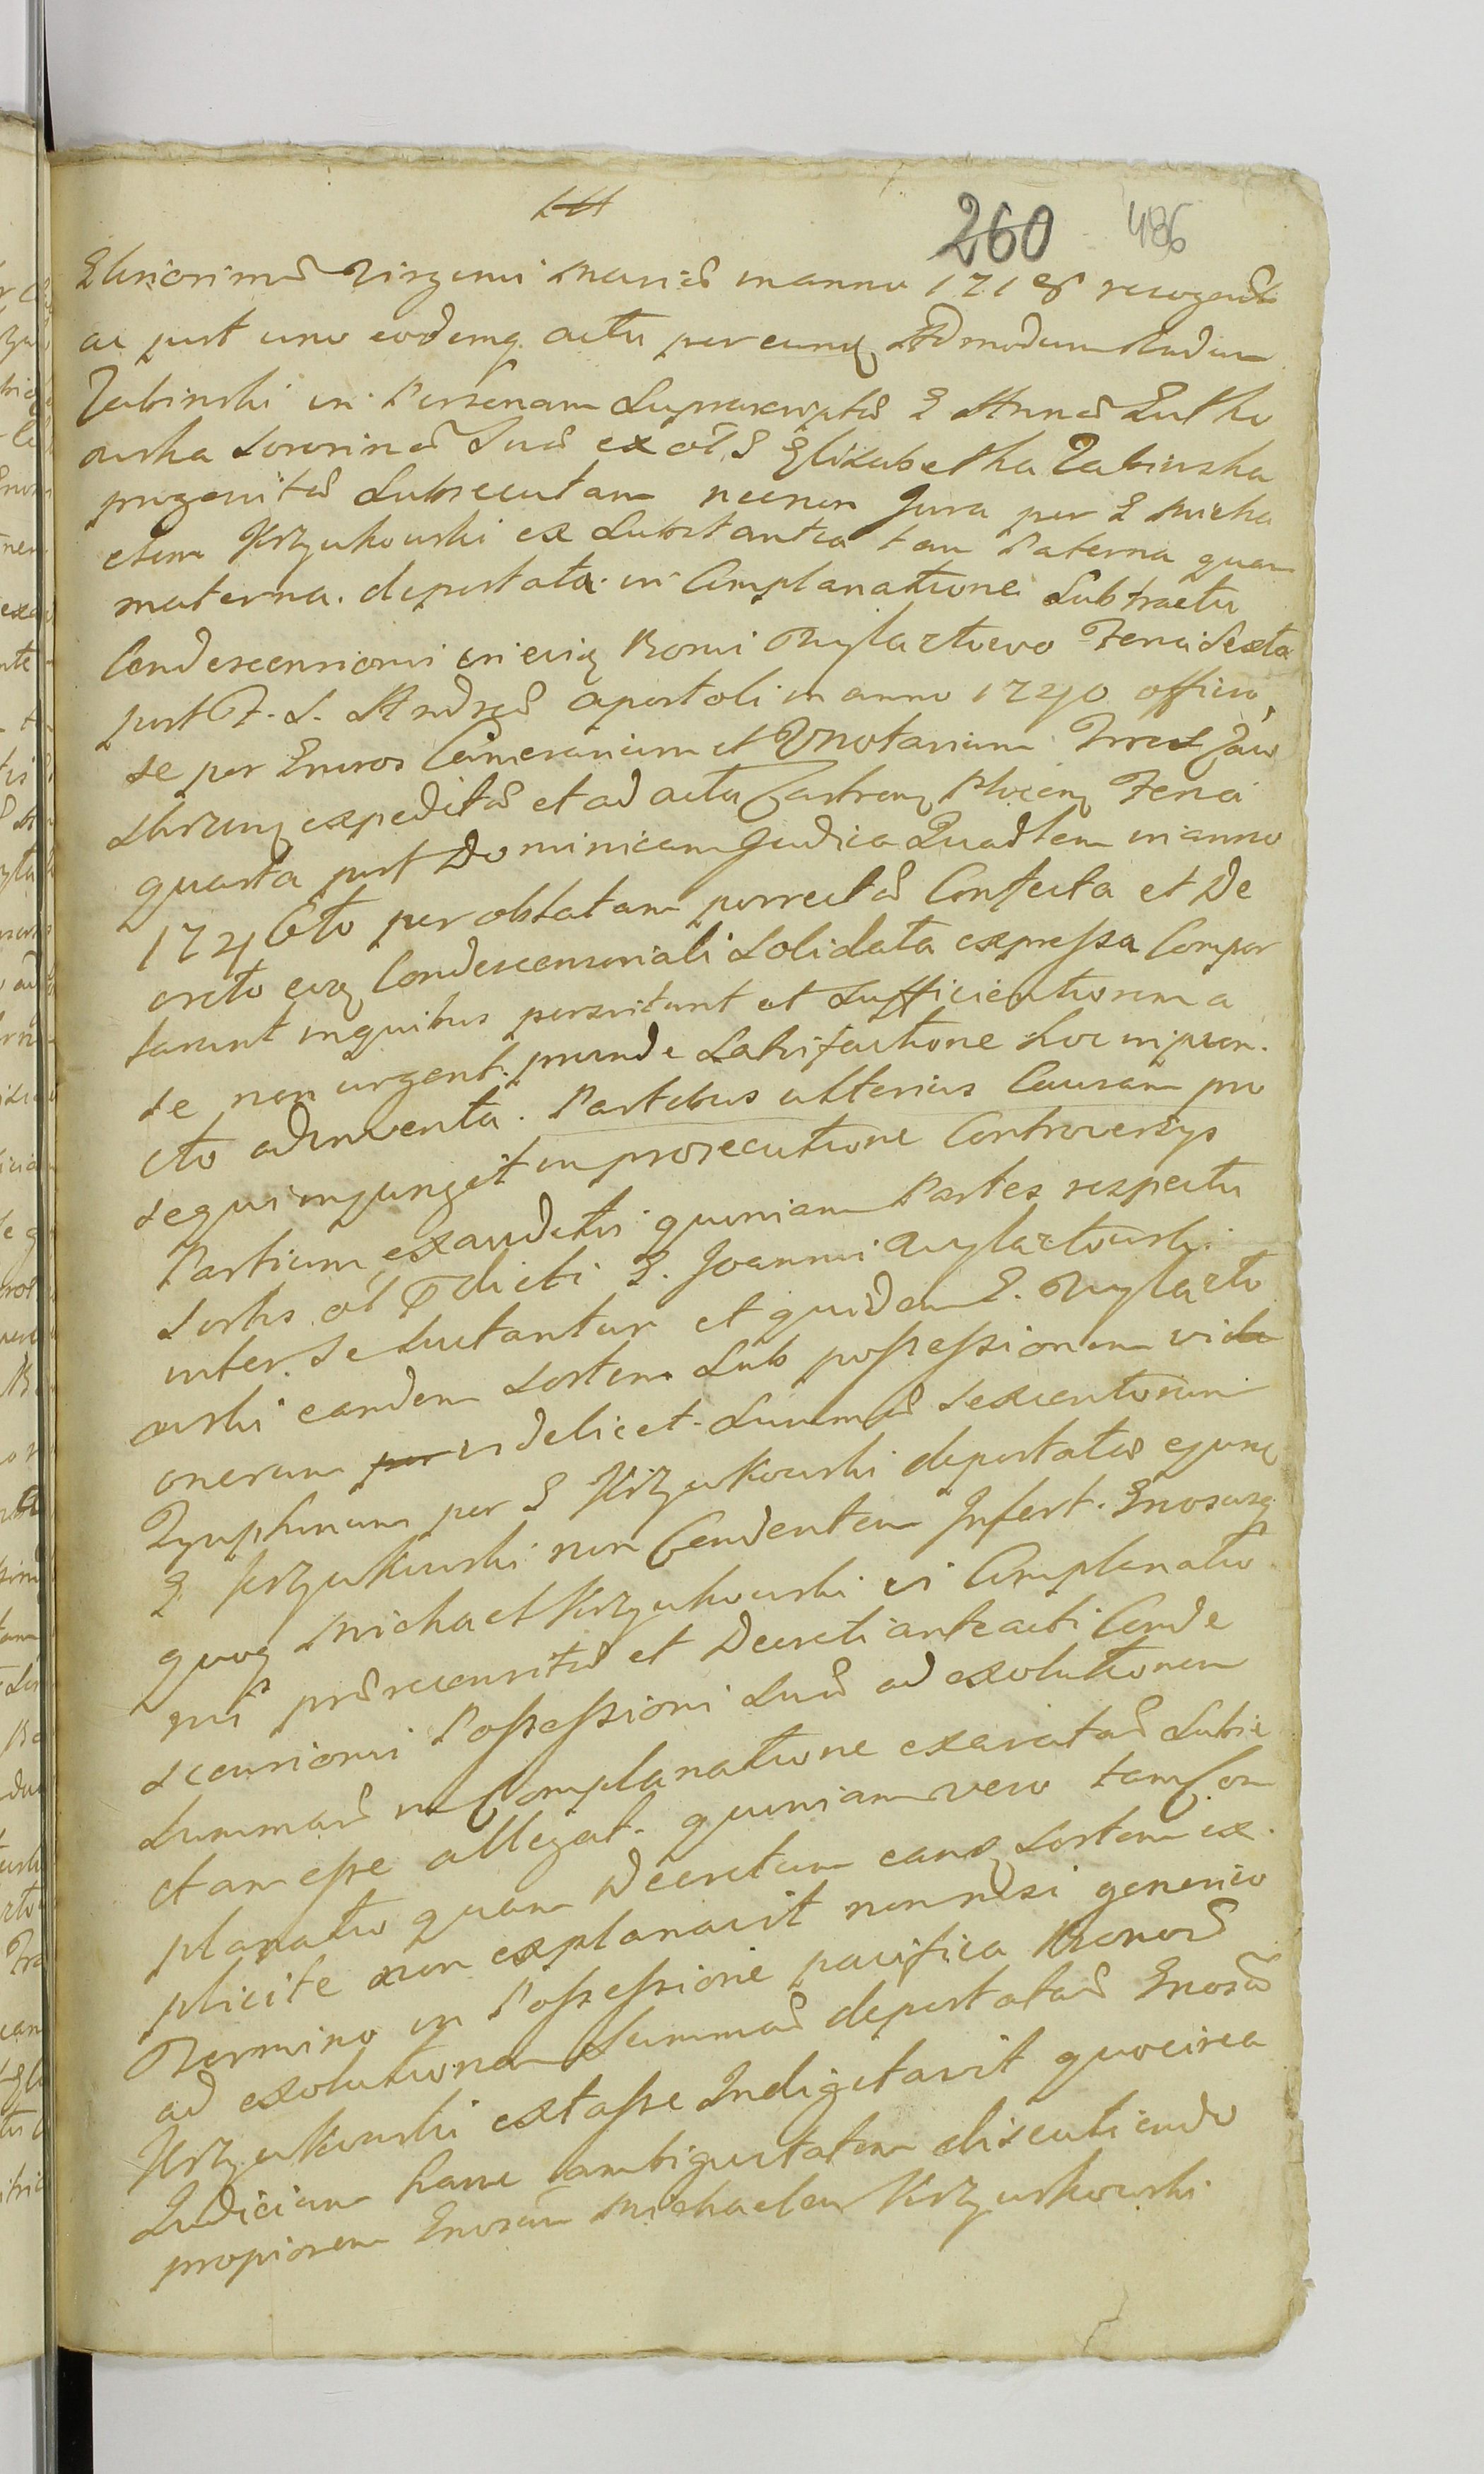 260 486
Gloriosimæ Virginis Mariæ in anno 1718 recognit
ac post uno eodemq actu per eundq Admodum Rndum
Zabinski in Personam Suprascriptæ G Annæ Gutko
wska Sororinæ Suæ ex ol G Elizabetha Zabinska
progenitæ Subsecutam necnon Jura per G Micha
elem Krzyukowski ex Substantia tam Paterna quam
materna. deportata in Complanatione Subtractu
Condescensionis in eiusq Bonis Mylaztwo Feria Sexta
post F. S. Andreæ Apostoli in anno 1740 officio
se per Gnrosos Camerarium et Vnotarium Trræ Zaw
skrzunq expeditæ et ad acta Castren Plocen Feria
quarta post Dominicam Judica Quadlem in anno
174 per oblatam porrectæ Confecta et De
creto eoq Condescensoriali Solidata expressa Compor
tarunt in quibus persistunt et Sufficientiorem a
se non urgent. proinde Satisfactione hoc in pun.
cto adinventa. Partibus ulterius Causam pro
sequi injungit in prosecutione Controversijs
Partium exauditis quoniam Partes respectu
Sortis ol dicti G. Joannis Mylaztowski
inter Se luctantur et quidem G. Mylazto
wski eandem Sortem Sub possessionem vide
onerum per videlicet Summæ Sexcentorum
Tymphorum per G Krzyukowski deportatæ ejusq
G Krzyukowski non Cendentem Infert. Gnosusq
quoq Michael Krzyukowski vi Complanatio
nis prærecensitæ et Decreti anteacti Conde
scensionis Possessioni Suæ ad exolutionem
Summæ in Complanatione exaratæ Subie
ctam esse allegat. quoniam vero tam Com
planatio quam Decretum eandq Sortem ex.
plicite non explanavit non nisi generico
Termino in Possessione pacifica Bonorum
ad exolutionem Summæ deportatæ Gnosum
Krzyukowski extasse Indigitavit quocirca
Judicium hanc ambiguitatem discutiendo
propiorem Gnosum Michaelem Krzyukowski